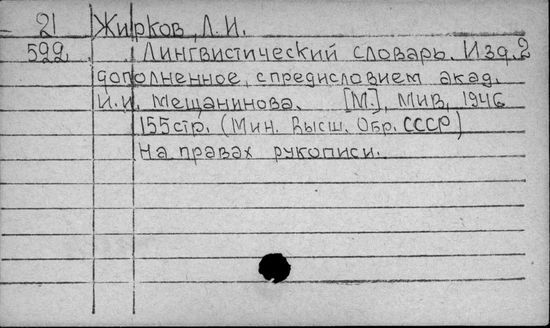 21 Жирков, Л. И.
599. Лингвистический словарь. Изд. 2
дополненное, с предисловием акад.
И. И. Мещанинова. [М.], МИВ, 1946
155стр. (Мин. Высш. Обр. СССР)
На правах рукописи.